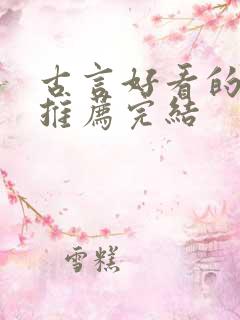 古言好看的
推薦完結
雪糕